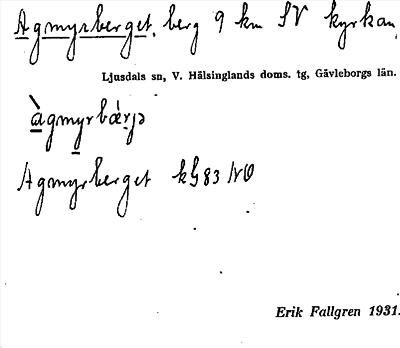 Agmyrberget, berg 9 km SV kyrkan,
Ljusdals sn, V. Hälsinglands doms. tg, Gävleborgs län.
àgmyrbærjə
Agmyrberget kG 83 NO
Erik Fallgren 1931.